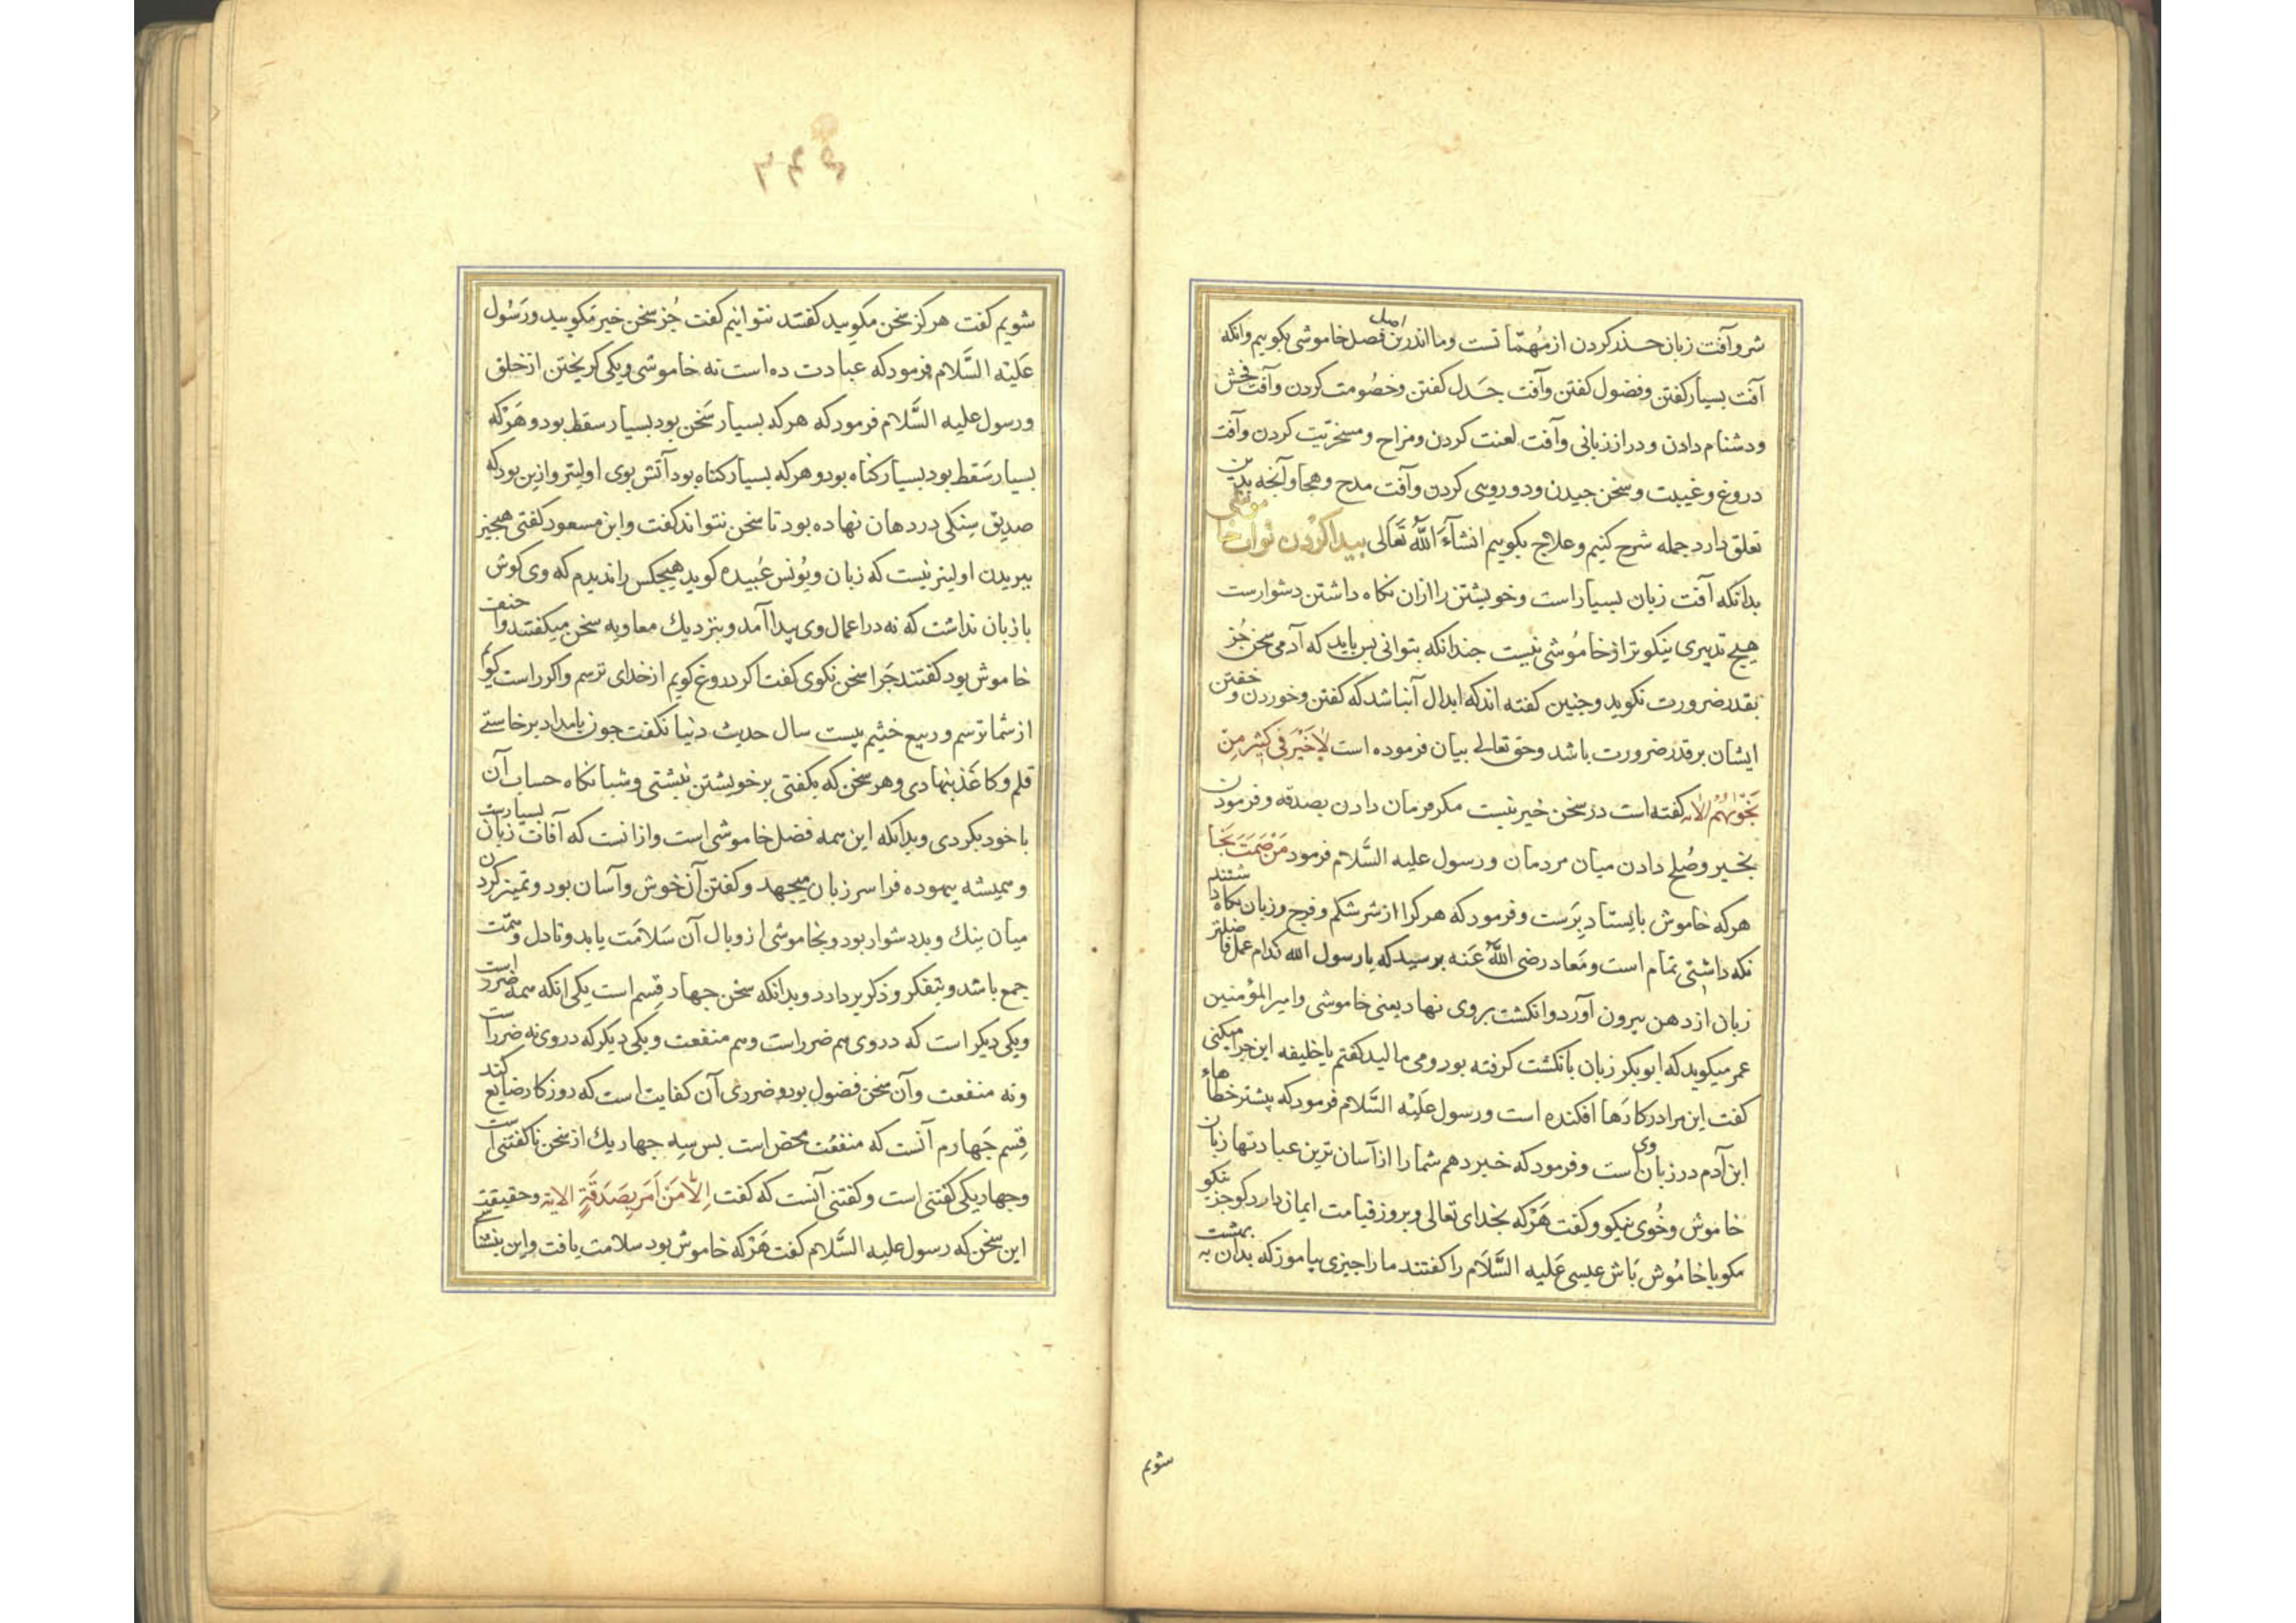 شر و آفت زبان حذر کردن از مهمّاتست و ما اندرین اصل فصل خاموشی بکوییم وانکه
آفت بسیار کفتن و فضول کفتن و آفت جَدل کفتن و خصُومت کردن و آفت فحش
و دشنام دادن و دراز زبانی و آفت لعنت کردن و مزاح و مسخریّت کردن و آفت
دروغ و غیبت و سخن جیدن و دوروسی کردن و آفت مدح و هجا و آنجه بدین
تعلق دارد جمله شرح کنیم و علاج بکوییم انشآءَ اللّٰه تَعَالی بیدا کردن ثواب خاموشی
بدانکه آفت زبان بسیار است و خویشتن را ازان نکاه داشتن دشوارست
هیج تدبیری نیکوتر از خامُوشی نیست جندانکه بتوانی بس باید که آدمی سخن جُز
بقدر ضرورت نکوید و جنین کفته اند که ابدال آنباشد که کفتن و خوردن و خفتن
ایشان بر قدر ضرورت باشد و حق تعالی بیان فرموده است لَاخَیْرَ فی کَثیرٍ مِن
نَجْوٰیهُمْ الایه کفته است در سخن خیر نیست مکر فرمان دادن بصدقه و فرمودن
بخیر و صُلح دادن میان مردمان و رسول علیه السَّلام فرمود مَن صَمَتَ نَجَا
هرکه خاموش بایستاد بِرَست و فرمود که هرکرا از شر شکم و فرج و زبان نکاه داشتند
نکه داشتی تمام است و مَعاد رضی اللّٰه عَنه برسید که یا رسول الله کدام عمل فاضلتر
زبان از دهن بیرون آورد و انکشت بروی نهاد یعنی خاموشی و امیر المؤمنین
عمر میکوید که ابوبکر زبان بانکشت کرفته بود و می مالید کفتم یا خلیفه این جرا میکنی
کفت این مرا در کارَها افکنده است و رسول عَلَیْه السَّلام فرمود که بیشتر خطاهاء
ابن آدم در زبان وی است و فرمود که خبر دهم شما را از آسان ترین عبادتها زبان
خاموش و خُوی نیکو و کفت هَرْکه بخدای تعالی و بروز قیامت ایمان دارد کو جز نیکو
مکو یا خامُوش بَاش عیسی عَلیه السَّلَام را کفتند ما را جیزی بیاموز که بدان به بهشت
شویم
۳۴۴
شویم کفت هرکز سخن مکویید کفتند نتوانیم کفت جُز سخن خیر مکویید و رَسُول
عَلَیْه السَّلام فرمود که عبادت ده است نه خاموشی و یکی کریختن از خلق
و رسول علیه السَّلام فرمود که هرکه بسیار سَخن بود بسیار سقط بود و هَرْکه
بسیار سَقط بود بسیار کناه بود و هرکه بسیار کناه بود آتش بوی اولیتر و ازین بود که
صدیق سنکی در دهان نهاده بود تا سخن نتواند کفت و ابن مسعود کفتی هیجیز
ببریدن اولیتر نیست که زبان و یُونس عُبیده کوید هیجکس را ندیدم که وی کوش
با زبان نداشت که نه در اعمال وی بیدا آمد و بنزدیك معاویه سخن میکفتند و احنف
خاموش بود کفتند جَرا سخن نکوی کفت اکر دروغ کویم از خدای ترسم و اکر راست کویم
از شما ترسم و ربیع خثیم بیست سال حدیث دنیا نکفت جون بامداد برخاستی
قلم و کاغَذ بنهادی و هر سخن که بکفتی بر خویشتن نبشتی و شبانکاه حساب آن
با خود بکردی و بدانکه این همه فضل خاموشی است و ازانست که آفات زبان بسیارست
و همیشه بیهوده فرا سر زبان میجهد و کفتن آن خوش و آسان بود و تمییز کردن
میان نیك و بد دشوار بود و بخاموشی از وبال آن سَلامَت یابد و تا دل و همّت
جمع باشد و بتفکر و ذکر بردارد و بدانکه سخن جهار قِسم است یکی انکه همه ضرر است
و یکی دیکر است که در وی هم ضرر است و هم منفعت و یکی دیکر که در وی نه ضرر است
و نه منفعت و آن سخن فضول بود و ضرری آن کفایت است که روزکار ضایع کند
قِسم جَهارم آنست که منفعَت محض است بس سِه جهار یك از سخن ناکفتنی است
و جهار یکی کفتنی است و کفتنی آنست که کفت اِلَّا مَن اَمَر بِصَدَقَةٍ الایه و حقیقت
این سخن که رسول علیه السَّلام کفت هَرْکه خاموش بود سلامت یافت و این نشناسی